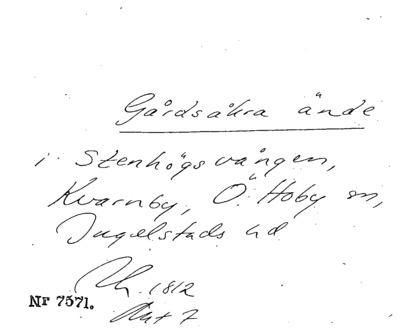 Gårdsåkra ände
i Stenhögsvången,
Kvarnby, Ö. Hoby sn,
Ingelstads hd
1812
Nr 7571.